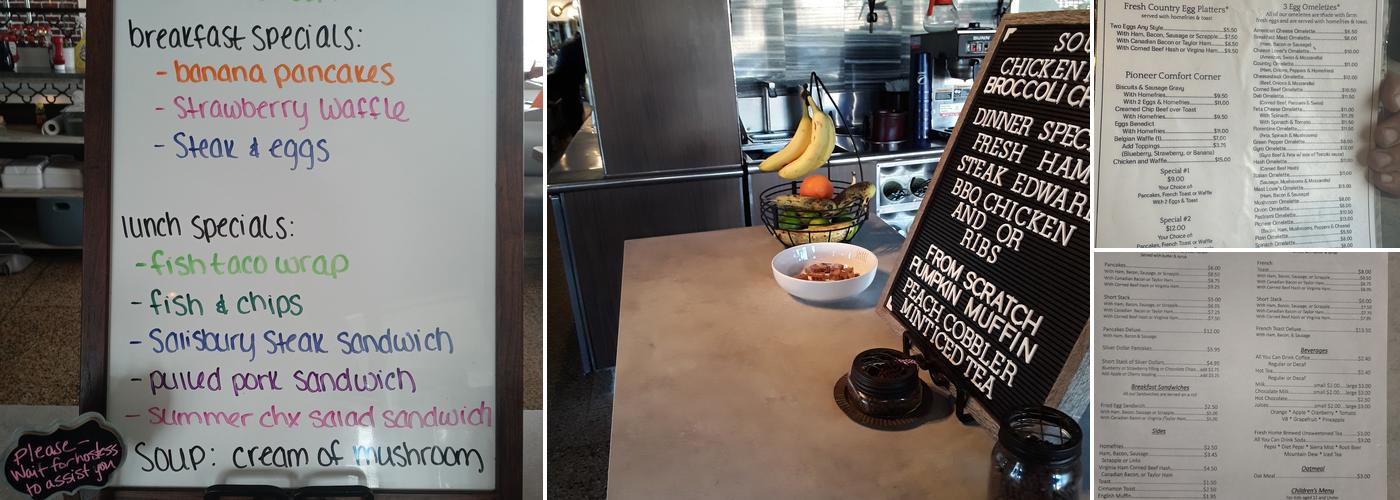 breakfast specials:
- banana pancakes
- Strawberry Waffle
- Steak & eggs
lunch specials:
- fish taco wrap
- fish & chips
- Salisbury Steak Sandwich
- pulled pork sandwich
- summer chx salad sandwich
Soup: cream of mushroom
Please -
Wait for hostess
to assist you
SOU
CHICKEN
BROCCOLI CH
DINNER SPEC
FRESH HAM
STEAK EDWARD
BBQ CHICKEN
AND OR
RIBS
FROM SCRATCH
PUMPKIN MUFFIN
PEACH COBBLER
MINT ICED TEA
BUNN
Fresh Country Egg Platters*
served with homefries & toast
Two Eggs Any Style $5.50
With Ham, Bacon, Sausage or Scrapple $7.50
With Canadian Bacon or Taylor Ham $8.50
With Corned Beef Hash or Virginia Ham $9.50
Pioneer Comfort Corner
Biscuits & Sausage Gravy
With Homefries $9.50
With 2 Eggs & Homefries $11.00
Creamed Chip Beef over Toast
With Homefries $9.50
Eggs Benedict
With Homefries $11.00
Belgian Waffle (1) $7.00
Add Toppings $3.75
(Blueberry, Strawberry, or Banana)
Chicken and Waffle $15.00
Special #1
$9.00
Your Choice of:
Pancakes, French Toast or Waffle
With 2 Eggs & Toast
Special #2
$12.00
Your Choice of:
Pancakes, French Toast or Waffle
3 Egg Omelettes*
All of our omelettes are made with farm
fresh eggs and are served with homefries & toast.
American Cheese Omelette
Breakfast Meat Omelette
(Ham, Bacon or Sausage)
Cheese Lover's Omelette $10.00
(American, Swiss & Mozzarella)
Country Omelette $11.00
(Ham, Onions, Peppers & Homefries)
Cheesesteak Omelette
(Beef, Onions & Mozzarella)
Corned Beef Omelette
Deli Omelette
Feta Cheese Omelette
With Spinach
With Spinach & Tomato
Florentine Omelette
(Feta, Spinach & Mushrooms)
Green Pepper Omelette
Gyro Omelette
Hash Omelette
(Corned Beef Hash)
Italian Omelette
(Sausage, Mushrooms & Mozzarella)
Meat Lover's Omelette
(Ham, Bacon & Sausage)
Mushroom Omelette
Onion Omelette
Pastrami Omelette
Pioneer Omelette
(Bacon, Ham, Mushrooms, Peppers & Cheese)
Plain Omelette
Spinach Omelette
Pancakes $6.00
With Ham, Bacon, Sausage, or Scrapple
With Canadian Bacon or Taylor Ham
With Corned Beef Hash or Virginia Ham
Short Stack $5.00
With Ham, Bacon, Sausage, or Scrapple
With Canadian Bacon or Taylor Ham
With Corned Beef Hash or Virginia Ham
Pancakes Deluxe $12.00
With Ham, Bacon & Sausage
Silver Dollar Pancakes $5.95
Short Stack of Silver Dollars $4.95
Breakfast Sandwiches
All our Sandwiches are served on a roll
Fried Egg Sandwich $2.50
With Ham, Bacon, Sausage or Scrapple
With Canadian Bacon or Taylor Ham
Sides
Homefries $2.50
Ham, Bacon, Sausage, $3.45
Scrapple or Links
Virginia Ham Corned Beef Hash $4.50
Canadian Bacon or Taylor Ham
Toast
Cinnamon Toast
English Muffin
French
Toast $8.00
With Ham, Bacon, Sausage, or Scrapple
With Canadian Bacon or Taylor Ham
With Corned Beef Hash or Virginia Ham
Short Stack $6.00
With Ham, Bacon, Sausage, or Scrapple
With Canadian Bacon or Taylor Ham
With Corned Beef Hash or Virginia Ham
French Toast Deluxe $13.50
With Ham, Bacon, & Sausage
Beverages
All You Can Drink Coffee $2.40
Regular or Decaf
Hot Tea
Regular or Decaf
Milk small $2.00 large $3.00
Chocolate Milk small $2.00 large $3.00
Hot Chocolate $2.50
Juices small $2.00 large $3.00
Orange * Apple * Cranberry * Tomato
V8 * Grapefruit * Pineapple
Fresh Home Brewed Unsweetened Tea $3.00
All You Can Drink Soda $3.00
Pepsi * Diet Pepsi * Sierra Mist * Root Beer
Mountain Dew * Iced Tea
Oatmeal
Oat Meal $3.00
Children's Menu